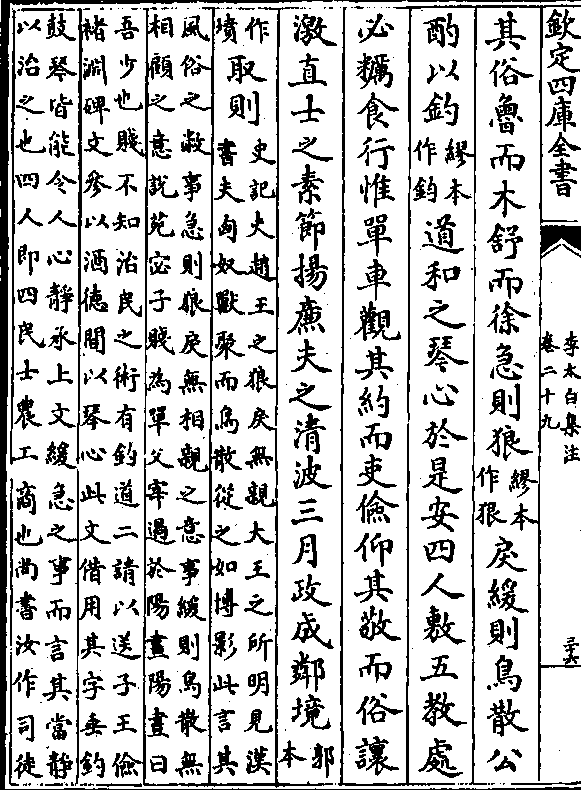 欽定四庫全書
李太白集注
卷二十九
三六
其俗魯而木舒而徐急則狼繆本作狠戾緩則鳥散公
酌以釣繆本作鈞道和之琴心於是安四人敷五教處
必糲食行惟單車觀其約而吏儉仰其敬而俗讓
激直士之素節揚廉夫之清波三月政成鄰境郭本
作墳取則史記夫趙王之狼戾無親大王之所明見漢書夫匈奴獸聚而鳥散從之如博影此言其
風俗之敝事急則狼戾無相親之意事緩則鳥散無相顧之意說苑宓子賤為單父宰過於陽晝陽晝曰
吾少也賤不知治民之術有釣道二請以送子王儉褚淵碑文參以酒德間以琴心此文借用其字垂釣
鼓琴皆能令人心靜承上文緩急之事而言其當靜以治之也四人即四民士農工商也尚書汝作司徒